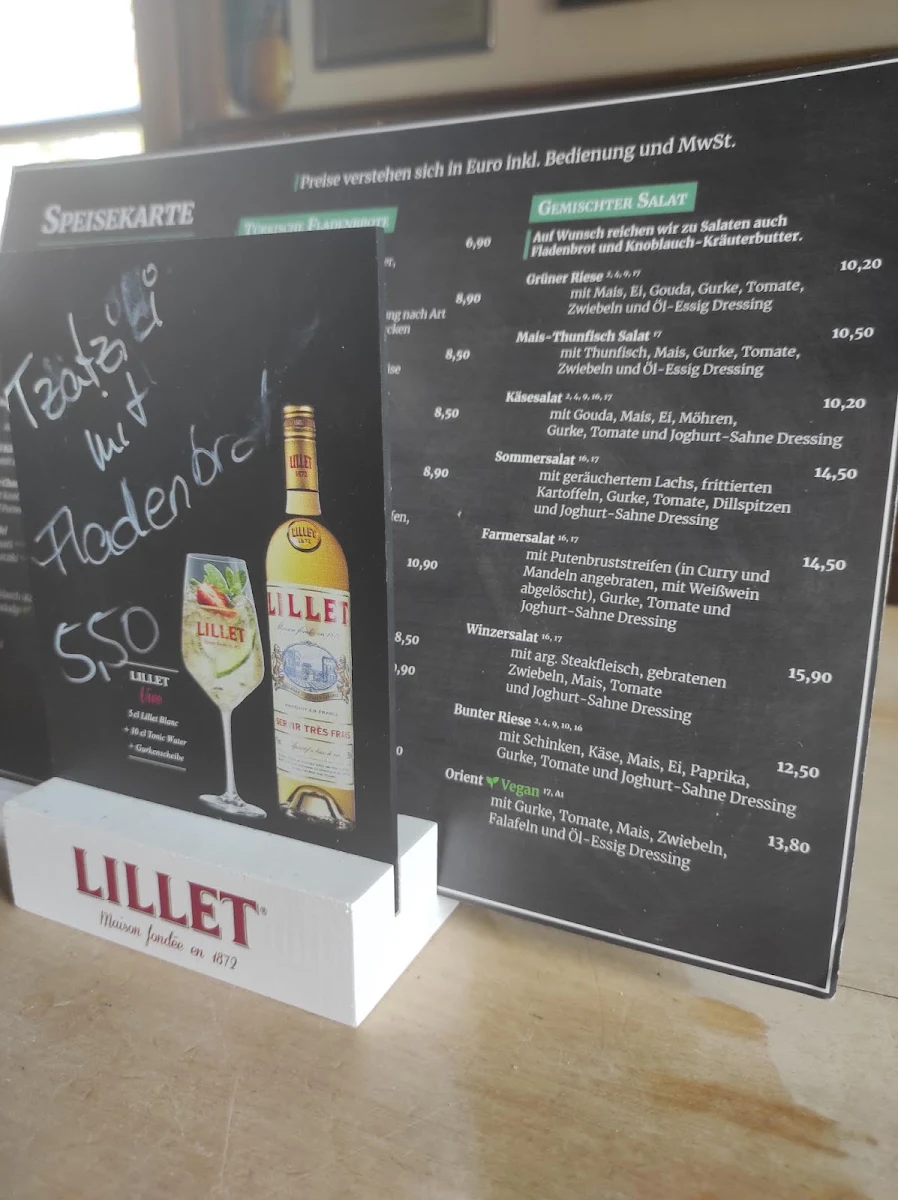 Preise verstehen sich in Euro inkl. Bedienung und MwSt.
SPEISEKARTE
TÜRKISCHE FLADENBROTE
6,90
8,90
ung nach Art
8,50
8,50
8,90
10,90
8,50
,90
0
GEMISCHTER SALAT
Auf Wunsch reichen wir zu Salaten auch
Fladenbrot und Knoblauch-Kräuterbutter.
Grüner Riese 2, 4, 9, 17 10,20
mit Mais, Ei, Gouda, Gurke, Tomate,
Zwiebeln und Öl-Essig Dressing
Mais-Thunfisch Salat 17 10,50
mit Thunfisch, Mais, Gurke, Tomate,
Zwiebeln und Öl-Essig Dressing
Käsesalat 2, 4, 9, 16, 17 10,20
mit Gouda, Mais, Ei, Möhren,
Gurke, Tomate und Joghurt-Sahne Dressing
Sommersalat 16, 17 14,50
mit geräuchertem Lachs, frittierten
Kartoffeln, Gurke, Tomate, Dillspitzen
und Joghurt-Sahne Dressing
Farmersalat 16, 17 14,50
mit Putenbruststreifen (in Curry und
Mandeln angebraten, mit Weißwein
abgelöscht), Gurke, Tomate und
Joghurt-Sahne Dressing
Winzersalat 16, 17 15,90
mit arg. Steakfleisch, gebratenen
Zwiebeln, Mais, Tomate
und Joghurt-Sahne Dressing
Bunter Riese 2, 4, 9, 10, 16 12,50
mit Schinken, Käse, Mais, Ei, Paprika,
Gurke, Tomate und Joghurt-Sahne Dressing
Orient Vegan 17, A1 13,80
mit Gurke, Tomate, Mais, Zwiebeln,
Falafeln und Öl-Essig Dressing
Tzatziki
mit
Fladenbrot
5,50
LILLET
Vive
5 cl Lillet Blanc
+ 10 cl Tonic Water
+ Gurkenscheibe
LILLET
LILLET
1872
LILLET
1872
LILLET
Maison fondée en 1872
PRODUIT EN FRANCE
SERVIR TRÈS FRAIS
LILLET®
Maison fondée en 1872